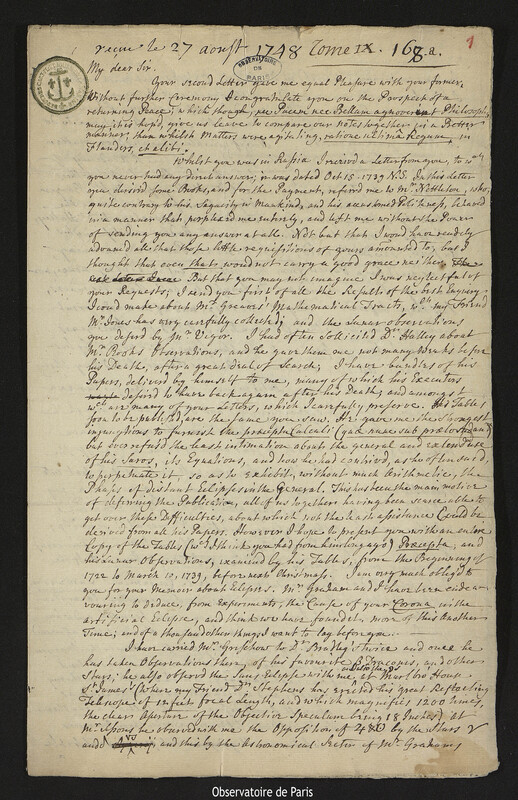 recue le 27 aoust 1748 Tome IX. 168.a. 1
OBSERVATOIRE DE PARIS
My dear Sir.
Your second Letter gave me equal Pleasure with your former.
Without further Ceremony I congratulate you on the Prospect of a
returning Peace, which though, nec Pacem nec Bellum Philosophy
may, it is hop'd, give us leave to compare our Notes together in a Better
manner, than whilst Matters were agitating, ratione ultima Regum, in
Flanders, et alibi.
Whilst you was in Russia I receiv'd a Letter from you, to wch
you never had any direct answer; it was dated Oct 15. 1739 N.S. In this letter
you desired some Books, and for the Payment, referd me to Mr. Nettleton, who,
quite contrary to his Sagacity in Mankind, and his accustomed Politeness, behaved
in a manner that perplexed me entirely, and left me without the Power
of sending you any answer at all. Not but that I would have readily
advanced all that those little requisitions of yours amounted to; but I
thought that even that, would not carry a good grace neither.
But that you may not imagine I was neglectful of
your Requests; I send you first of all the Result of the best Inquiry
I could make about Mr. Greaves' Mathematical Tracts, wch my Friend
Mr. Jones has very carefully collected; and the Lunar observations
you desird by Mr. Vezov. I had often sollicited Dr. Halley about
Mr. Rooks Observations, and he gave them me not many Weeks before
his Death, after a great deal of Search; I have bundles of his
Papers, deliverd by himself to me, many of which his Executors
desird to have back again after his Death; and amongst
wch are many of your Letters, which I carefully preserve. His Tables
soon to be published, are the same you saw. He gave me the strongest
injunctions to furnish the Præcepta calculi (quæ nunc sub prælo sunt)
but ever refused the least intimation about the general use and extent
of his Saros, its Equations, and how he had contrived, as he often said,
to perpetuate it, so as to exhibit, without much Arithmetic, the
Phases of distant Eclipses in the General. This has been the main motive
of deferring the Publication, all of us together having been scarce able to
get over these Difficulties, about which not the least assistance could be
derived from all his Papers. However I hope to present you with an entire
Copy of the Tables (wch I think you had from him long ago) Præcepta, and
his Lunar Observations, examined by his Tables, from the Beginning of
1722 to March 10, 1739, before next Christmas. I am very much oblig'd to
you for your Memoir about Eclipses. Mr. Graham and I have been endea-
vouring to deduce, from Experiments, the Cause of your Corona, in the
artificial Eclipse, and think we have found it, more of this another
Time; and of a thousand other things I want to lay before you.
I have carried Mr. Grischow to Dr. Bradley twice and once he
has taken Observations there, of his favourite γ Draconis, and other
Stars; he also observd the Suns Eclipse with me at Marlbro House
St. James's (Where my Friend Dr. Stephens has erected his great Reflecting
Telescope of 12 feet focal Length, and which magnifies 1200 times,
the clear Aperture of the Objective Speculum being 18 Inches) at
Mr. Sissons he observd with me the Opposition of by the Stars
and and this by the Astronomical Sector of Mr. Grahams
Observatoire de Paris